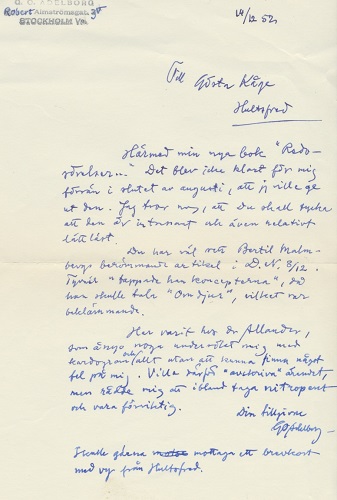 G. O. ADELBORG
Robert Almströmsgat. 3V
STOCKHOLM VA.
14/12 52
Till Gösta Kåge
Hultsfred
Härmed min nya bok "Redo-
görelser..." Det blev icke klart för mig
förrän i slutet av augusti, att jag ville ge
ut den. Jag tror nog, att Du skall tycka
att den är intressant och även relativt
lätt läst.
Du har väl sett Bertil Malm-
bergs berömmande artikel i D.N. 8/12.
Tyvärr "tappade han koncepterna", då
han skulle tala "Om djur", vilket var
beklämmande.
Har varit hos dr Allander,
som ånyo noga undersökt mig, med
kardiogram och allt utan att kunna finna något
fel på mig. Ville därför "avskriva" ärendet,
men rådde mig att ibland taga nitropent
och vara försiktig.
Din tillgivne
GOAdelborg
Skulle gärna mottaga ett brevkort
med vy från Hultsfred.